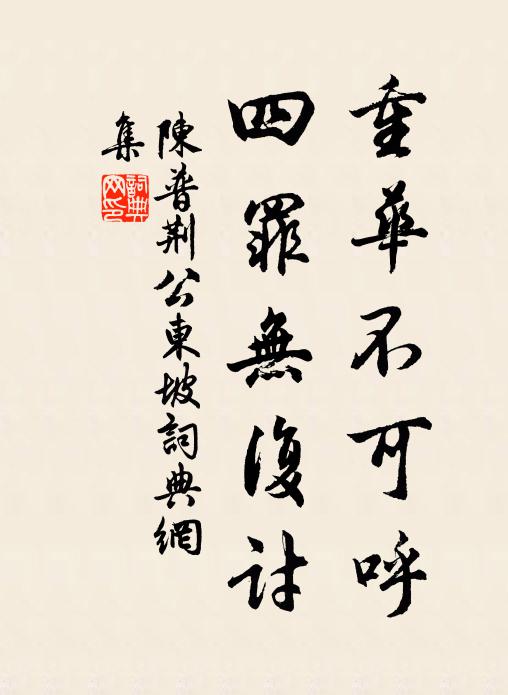 重華不可呼
四罪無復討
陳普荆公東坡詞典網
集
詞典網印